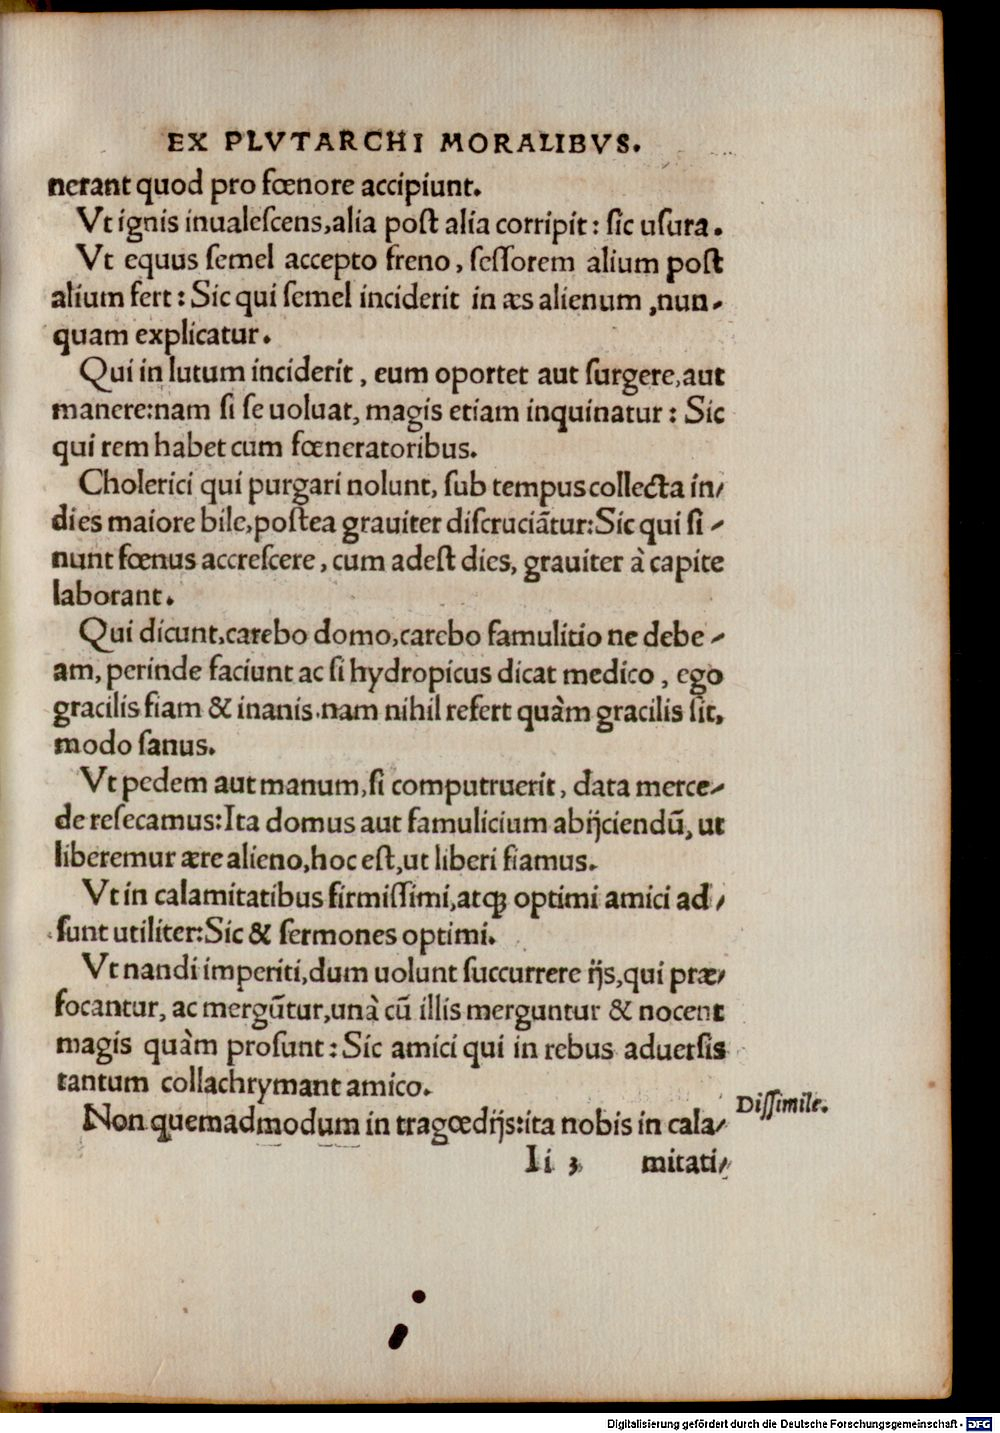 EX PLVTARCHI MORALIBVS.
nerant quod pro fœnore accipiunt.
Vt ignis inualeſcens,alia poſt alia corripit: ſic uſura.
Vt equus ſemel accepto freno, ſeſſorem alium poſt
alium fert: Sic qui ſemel inciderit in æs alienum ,nun-
quam explicatur.
Qui in lutum inciderit, eum oportet aut ſurgere,aut
manere:nam ſi ſe uoluat, magis etiam inquinatur: Sic
qui rem habet cum fœneratoribus.
Cholerici qui purgari nolunt, ſub tempus collecta in/
dies maiore bile,poſtea grauiter diſcruciãtur:Sic qui ſi-
nunt fœnus accreſcere, cum adeſt dies, grauiter à capite
laborant.
Qui dicunt,carebo domo,carebo famulitio ne debe-
am, perinde faciunt ac ſi hydropicus dicat medico, ego
gracilis fiam & inanis.nam nihil refert quàm gracilis ſit,
modo ſanus.
Vt pedem aut manum,ſi computruerit, data merce-
de reſecamus:Ita domus aut famulicium abijciendũ, ut
liberemur ære alieno,hoc eſt,ut liberi fiamus.
Vt in calamitatibus firmiſſimi,atqꝫ optimi amici ad/
ſunt utiliter:Sic & ſermones optimi.
Vt nandi imperiti,dum uolunt ſuccurrere ijs,qui præ/
focantur, ac mergũtur,unà cũ illis merguntur & nocent
magis quàm proſunt: Sic amici qui in rebus aduerſis
tantum collachrymant amico.
Diſſimile.
Non quemadmodum in tragœdijs:ita nobis in cala/
Ii 3 mitati/
Digitalisierung gefördert durch die Deutsche Forschungsgemeinschaft - DFG